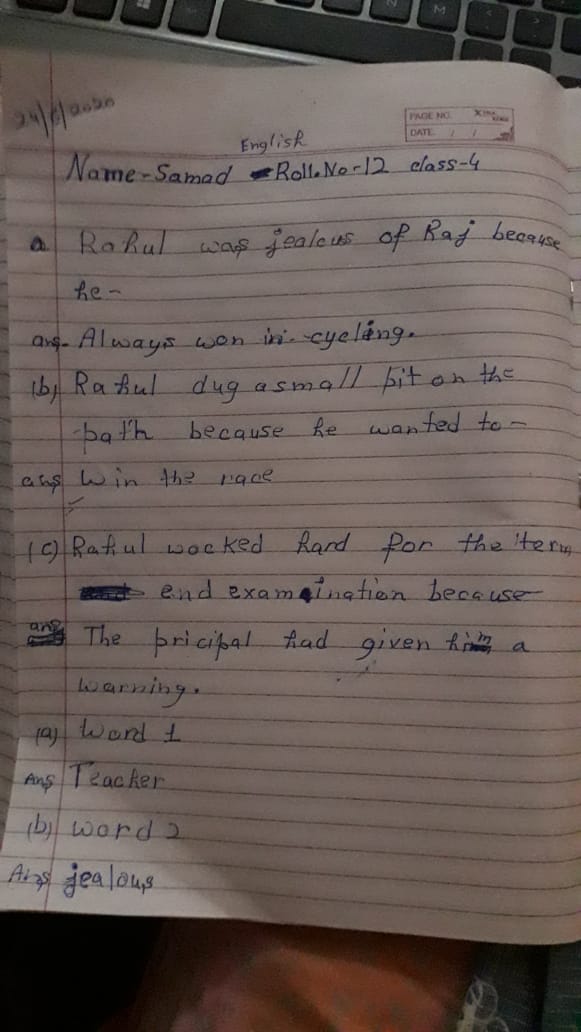 24/ /2020
PAGE NO.
DATE / /
English
Name-Samad Roll.No-12 class-4
a Rahul was jealous of Raj because
he-
ans- Always won in cycling.
(b) Rahul dug a small pit on the
path because he wanted to-
ans Win the race
(c) Rahul wocked hard for the term
end examination because
ans The pricipal had given him a
warning.
(a) Word 1
Ans Teacher
(b) word 2
Ans jealous